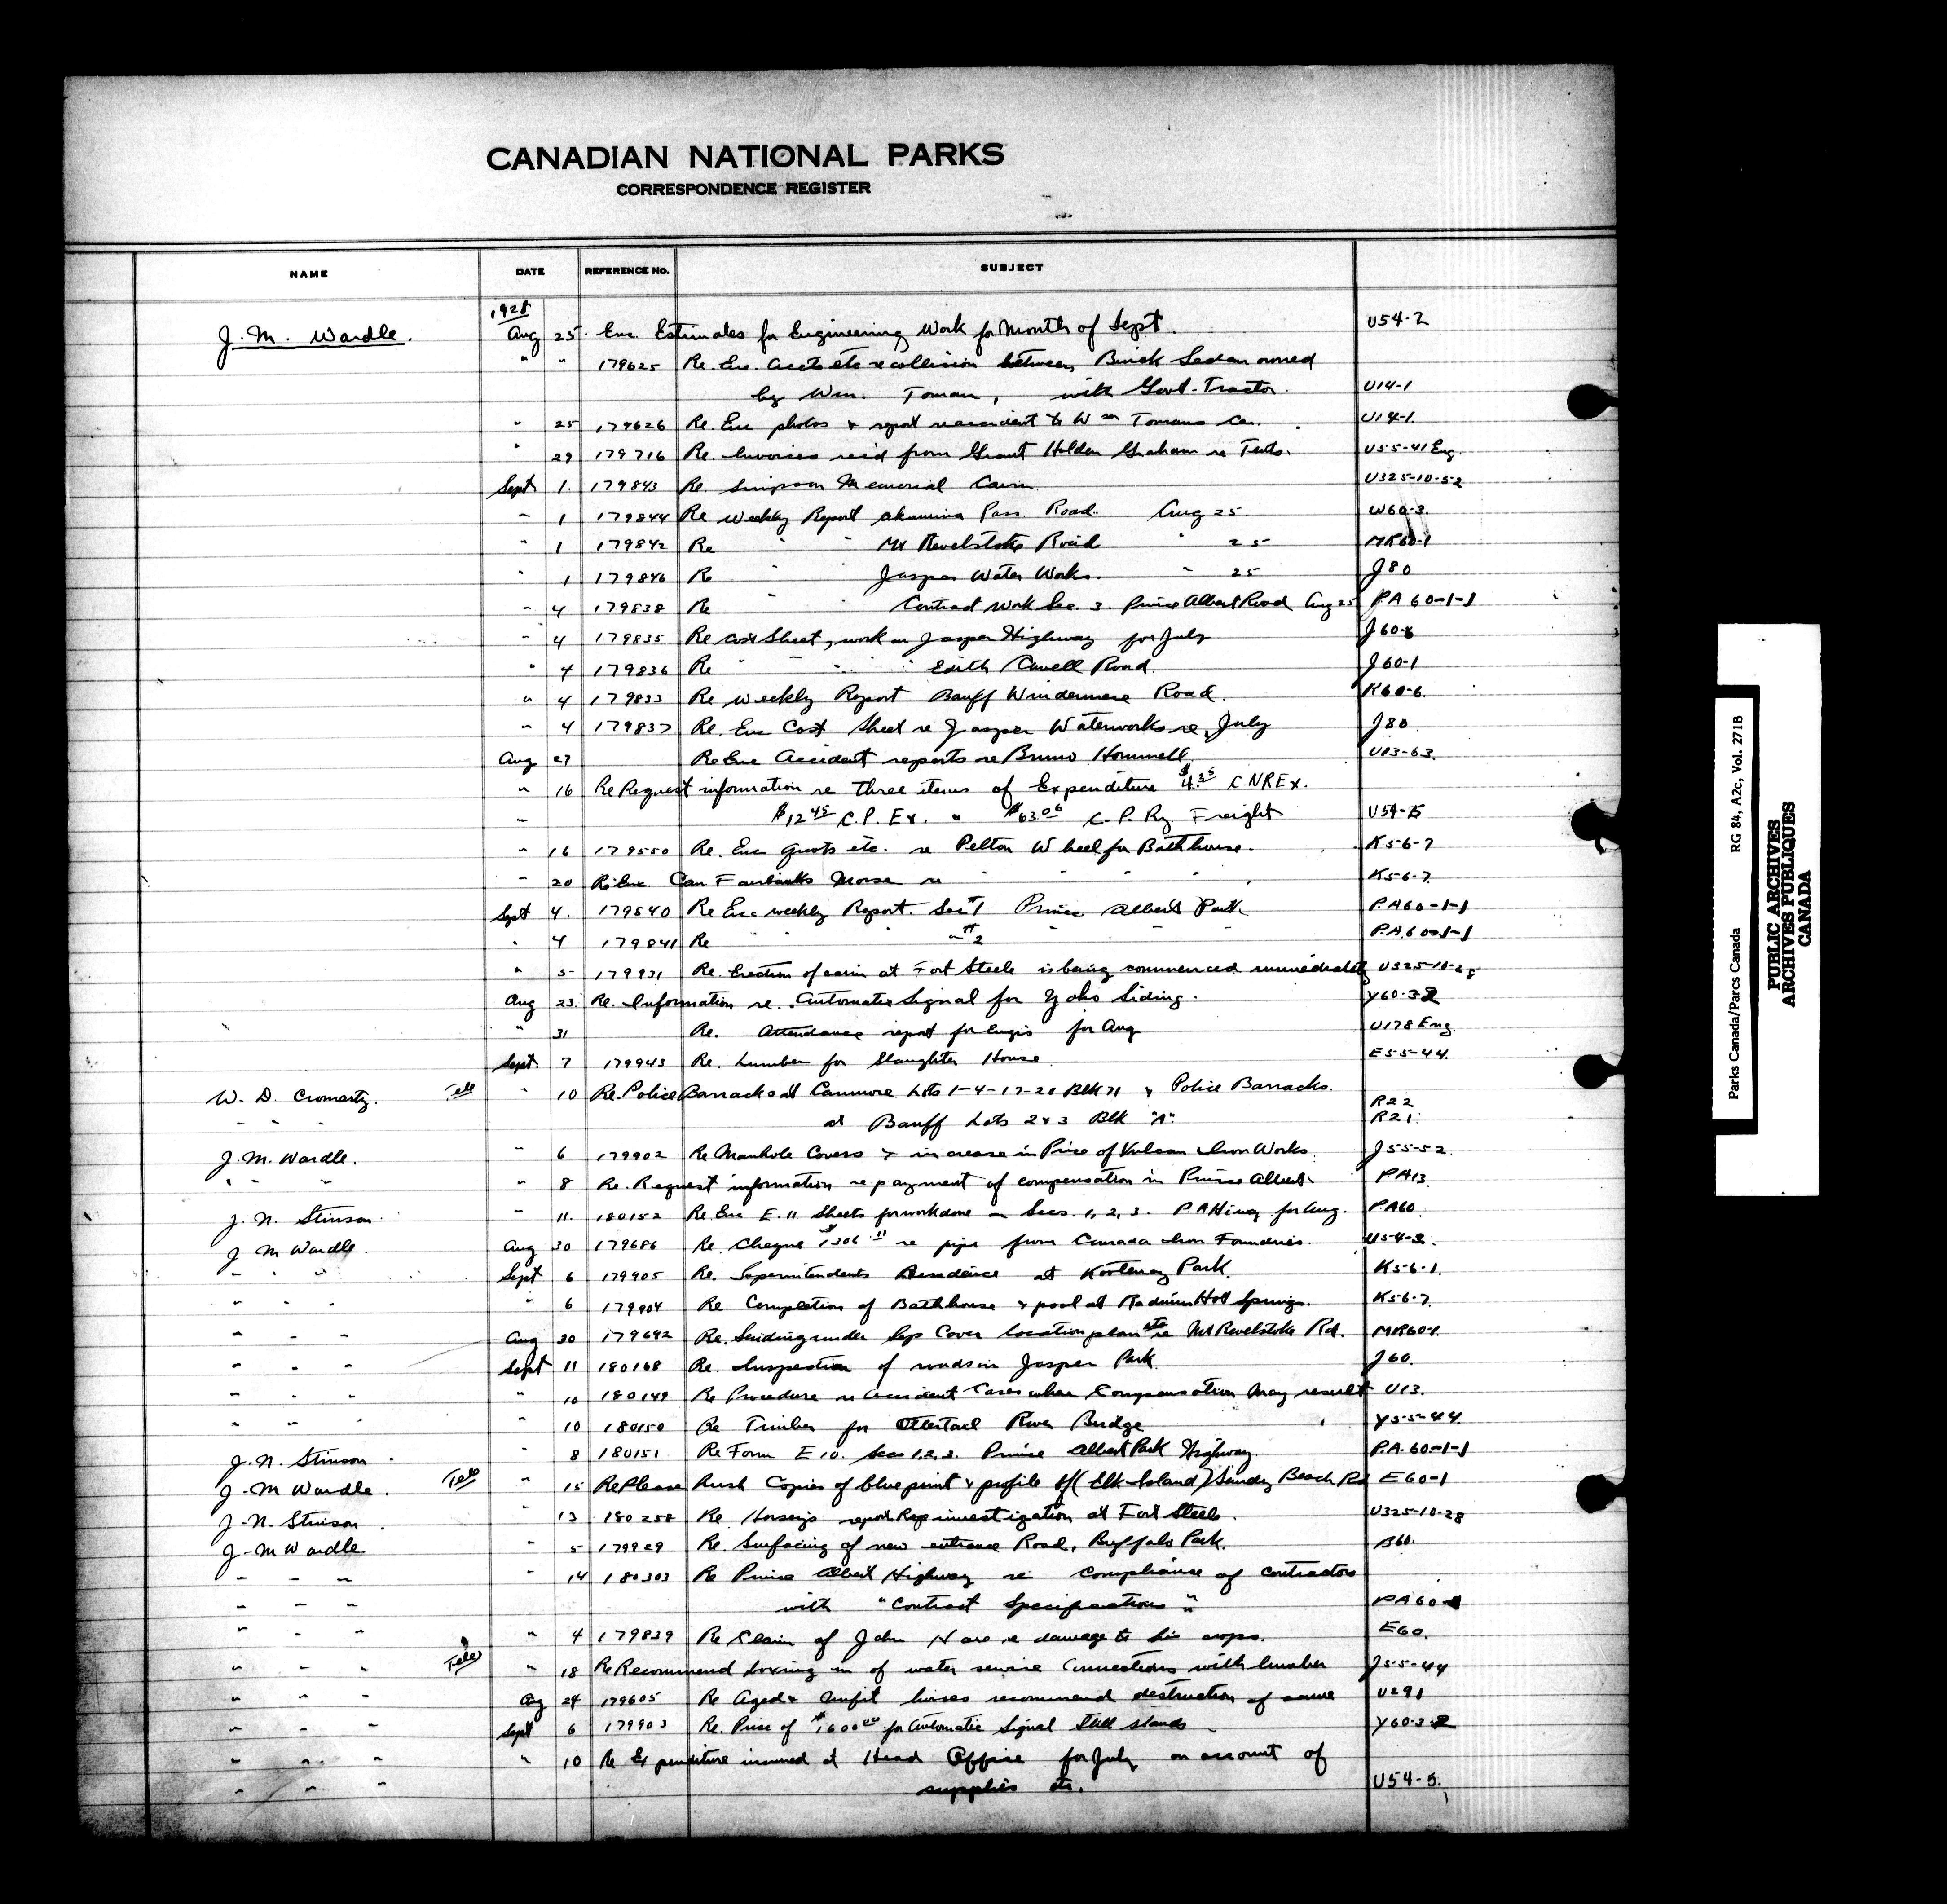 CANADIAN NATIONAL PARKS
CORRESPONDENCE REGISTER
NAME DATE REFERENCE No. SUBJECT
1928
J. M. Wardle. Aug 25. Enc Estimates for Engineering Work for Month of Sept. U54-2
" " 179625 Re. Enc. Accts etc re collision between Buick Sedan owned
by Wm. Toman, with Govt. Tractor. U14-1
" 25 179626 Re Enc photos & report re accident to Wm Tomans Car. U14-1.
" 29 179716 Re. Invoices rec'd from Grant Holden Graham re Tents. U55-41 Eng.
Sept 1. 179843 Re. Simpson Memorial Cairn U325-10-52
" 1 179844 Re Weekly Report Akamina Pass Road. Aug 25. W60-3.
" 1 179842 Re " " Mt Revelstoke Road " 25 MR60-1
" 1 179846 Re " " Jasper Water Works. " 25 J80
" 4 179838 Re " " Contract Work Sec. 3. Prince Albert Road Aug 25 PA 60-1-1
" 4 179835 Re Cost Sheet, work on Jasper Highway for July J60-
" 4 179836 Re " " " " Edith Cavell Road J60-1
" 4 179833 Re Weekly Report Banff Windermere Road. K60-6.
" 4 179837 Re. Enc Cost Sheet re Jasper Waterworks re July J80
Aug 27 Re Enc Accident reports re Bruno Hommell. U13-63.
" 16 Re Request information re three items of Expenditure $4.35 C.N.R Ex.
" $12 45 C.P. Ex. " $63.06 C.P. Ry Freight U54-5
" 16 179550 Re. Enc quots etc. re Pelton Wheel for Bathhouse. K56-7
" 20 Re Enc. Can Fairbanks Morse re " " " " K56-7.
Sept 4. 179840 Re Enc weekly Report. Sec #1 Prince Albert Park P.A60-1-1
" 4 179841 Re " " " #2 " " " P.A.60-1-1
" 5 179931 Re. Erection of cairn at Fort Steele is being commenced immediately U325-10-28
Aug 23. Re. Information re. Automatic Signal for Yoho Siding. Y60-32
" 31 Re. Attendance report for Engrs for Aug U178 Eng.
Sept. 7 179943 Re. Lumber for Slaughter House E55-44.
W. D. Cromarty. Tele " 10 Re. Police Barracks at Canmore Lots 1-4-17-20 Blk 71 & Police Barracks. R22
" " " at Banff Lots 2 & 3 Blk "A". R21.
J. M. Wardle. " 6 179902 Re Manhole Covers & increase in Price of Vulcan Iron Works J55-52.
" " " " 8 Re. Request information re payment of compensation in Prince Albert. PA13.
J. N. Stinson. " 11. 180152 Re Enc E. 11 Sheets for work done on Secs. 1, 2, 3. P A Hiway for Aug. PA60
J M Wardle. Aug 30 179686 Re. Cheque $1306 11 re pipe from Canada Iron Foundries. U54-2.
" " " Sept 6 179905 Re. Superintendents Residence at Kootenay Park. K56-1.
" " " " 6 179904 Re Completion of Bathhouse & pool at Radium Hot Springs. K56-7.
" " " Aug 30 179692 Re. Sending under Sep Cover location plan etc re Mt Revelstoke Rd. MR60-1.
" " " Sept 11 180168 Re. Inspection of roads in Jasper Park. J60.
" " " " 10 180149 Re Procedure re Accident Cases where Compensation may result U13.
" " " " 10 180150 Re Timber for Ottertail River Bridge Y55-44.
J. N. Stinson. " 8 180151 Re Form E 10. Secs 1,2,3. Prince Albert Park Highway. P.A.60-1-1
J. M Wardle. Tele " 15 Re Please Rush Copies of blueprint & profile of (Elk Island) Sandy Beach Rd E60-1
J. N. Stinson. " 13 180258 Re report Rep investigation at Fort Steele. U325-10-28
J. M Wardle " 5 179929 Re. Surfacing of new entrance Road, Buffalo Park. B60.
" " " " 14 180303 Re Prince Albert Highway re compliance of contractors
" " " with "Contract Specifications" PA60-
" " " " 4 179839 Re Claim of John Hare re damage to his crops. E60.
" " " Tele " 18 Re Recommend boxing in of water service connections with lumber J55-44
" " " Aug 24 179605 Re Aged & Unfit horses recommend destruction of same U291
" " " Sept 6 179903 Re. Price of $1600 00 for Automatic Signal Still stands. Y60-32
" " " " 10 Re Expenditure incurred at Head Office for July on account of
" " " supplies etc. U54-5.
Parks Canada/Parcs Canada RG 84, A2c, Vol. 271B
PUBLIC ARCHIVES
ARCHIVES PUBLIQUES
CANADA